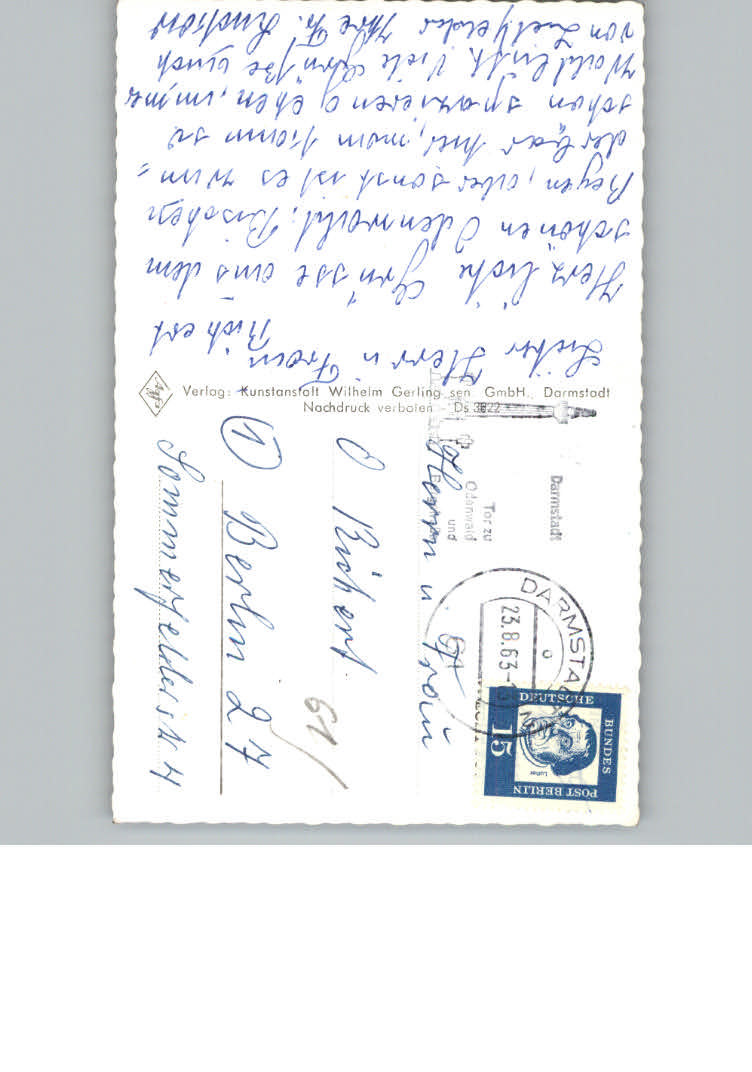 Lieber Herr u Frau
Richert
Herzliche Grüsse aus dem
schönen Odenwald. Bischen
Regen, aber sonst ist es wun=
derbar hier, man kann so
schön spazieren gehen, immer
Wald. Viele Grüße auch
von Ihre Fr.
Verlag: Kunstanstalt Wilhelm Gerling sen. GmbH., Darmstadt
Nachdruck verboten - Ds 3822
Agfa
Darmstadt
Tor zu
Odenwald
und
DARMSTADT
23.8.63
DEUTSCHE
BUNDES
POST BERLIN
15
Luther
Herrn u. Frau
O Richert
61
① Berlin 27
Sommerfelderstr 4